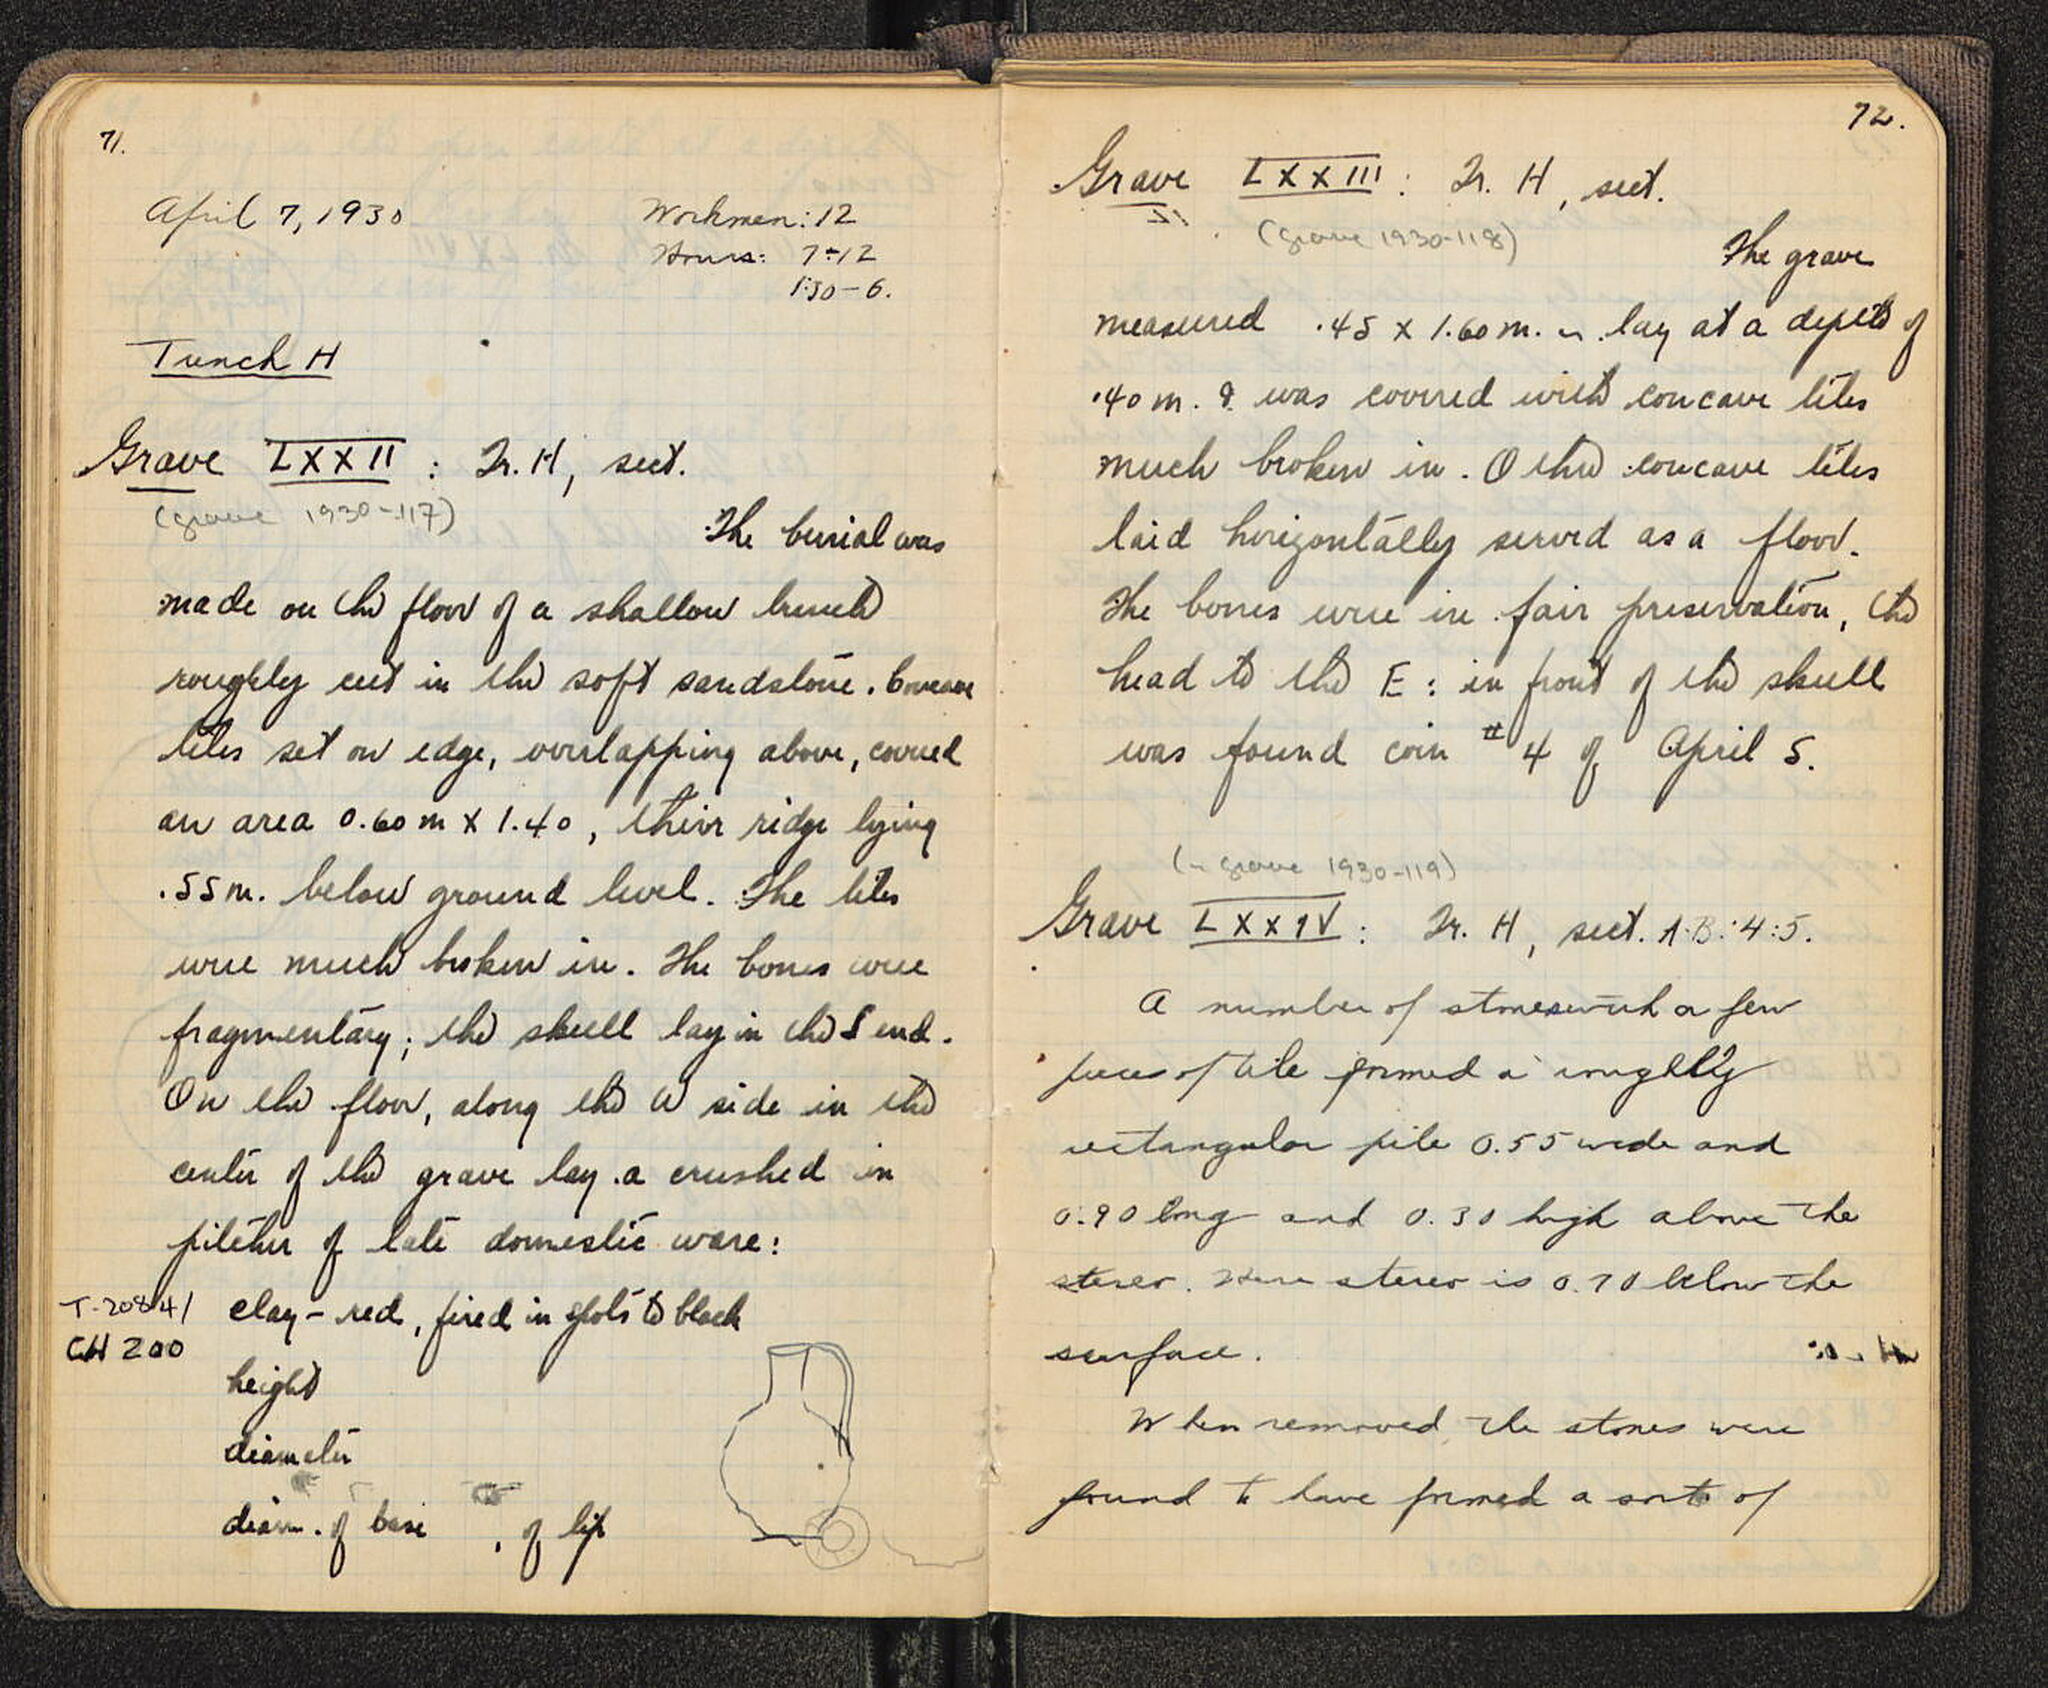 71.
April 7, 1930
Workmen: 12
Hours: 7-12
1:30-6.
Trench H
Grave LXXII : Tr. H, sect.
(grave 1930-117)
The burial was
made on the floor of a shallow trench
roughly cut in the soft sandstone. Concave
tiles set on edge, overlapping above, covered
an area 0.60 m x 1.40, their ridge lying
.55 m. below ground level. The tiles
were much broken in. The bones were
fragmentary; the skull lay in the S end.
On the floor, along the W side in the
center of the grave lay a crushed in
pitcher of late domestic ware:
T-2084/
CH 200
clay - red, fired in spots to black
height
diameter
diam. of base , of lip
72.
Grave LXXIII : Tr. H, sect.
(grave 1930-118)
The grave
measured .45 x 1.60 m. lay at a depth of
.40 m. & was covered with concave tiles
much broken in. Other concave tiles
laid horizontally served as a floor.
The bones were in fair preservation, the
head to the E : in front of the skull
was found coin #4 of April 5.
(grave 1930-119)
Grave LXXIV : Tr. H, sect. A-B:4:5.
A number of stones with a few
pieces of tile formed a roughly
rectangular pile 0.55 wide and
0.90 long and 0.30 high above the
stereo. Here stereo is 0.70 below the
surface.
When removed the stones were
found to have formed a sort of